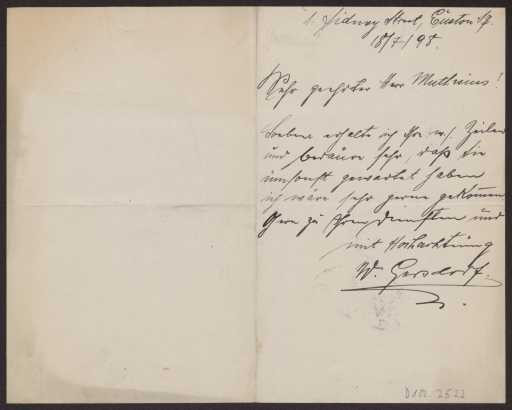 1. Sidney Street, Euston Sq.
18/7/98.
Sehr geehrter Herr Muthesius!
Soeben erhalte ich Ihre w. Zeilen
und bedaure sehr, daß Sie
umsonst gewartet haben
ich wäre sehr gerne gekommen
Gern zu Ihren Diensten und
mit Hochachtung
W. Gersdorf.
D 102 2522